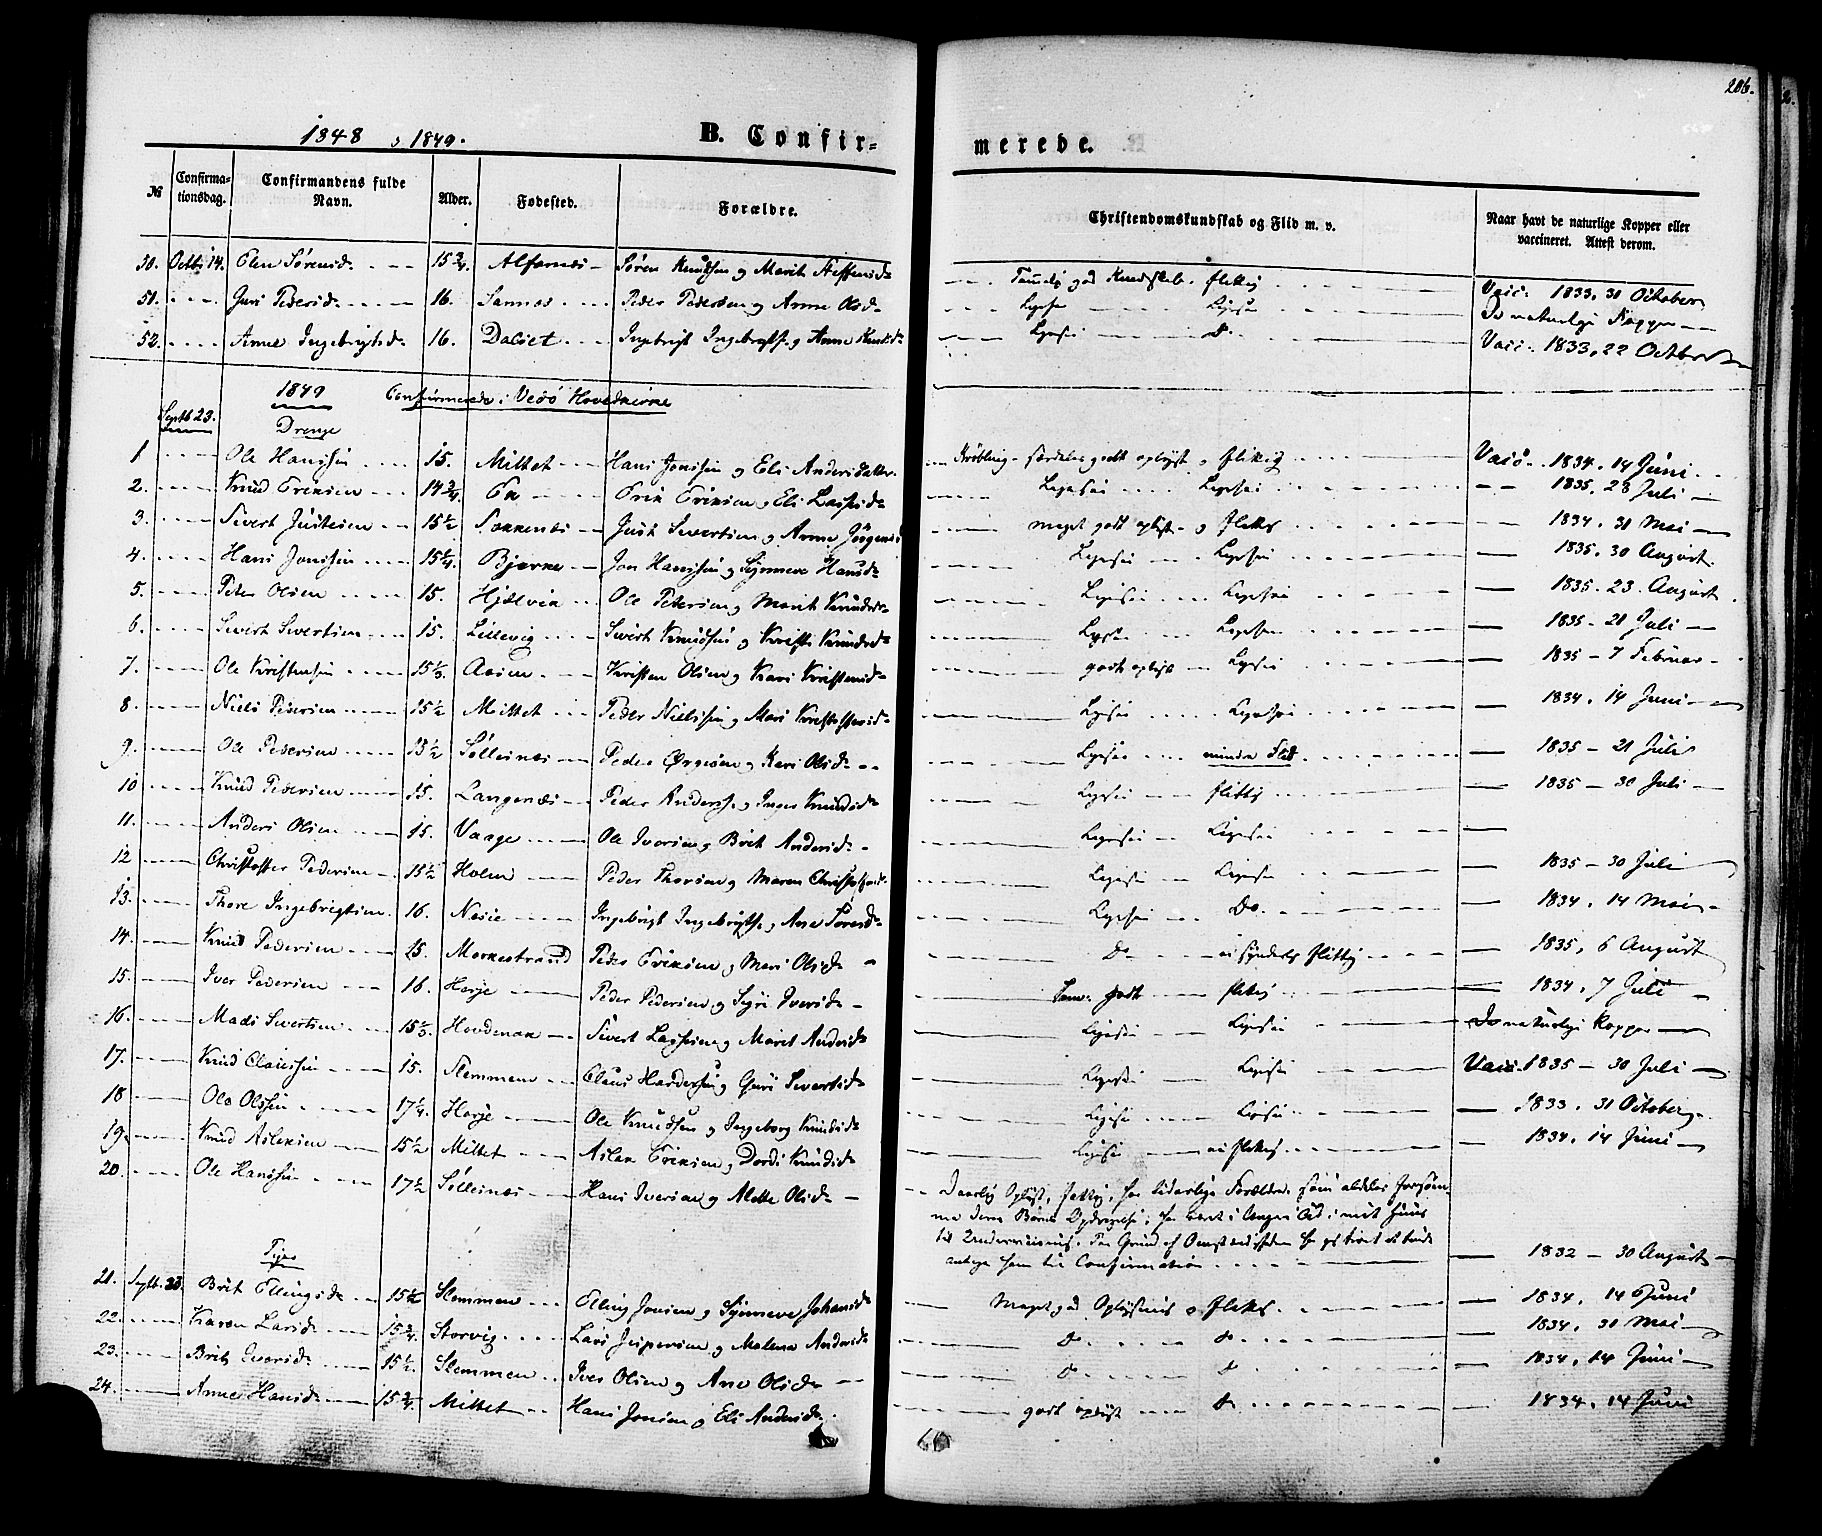 206.
1848 & 1849.
B. Confirmerede.
№ Confirmationsdag. Confirmandens fulde Navn. Alder. Fødested. Forældre. Christendomskundskab og Flid m. v. Naar havt de naturlige Kopper eller vaccineret. Attest derom.
50. Octb: 14. Elen Sørensd. 15 3/4. Alfarnæs Søren Knudsen og Marit Steffensd. god Kundskab. flittig Vacc: 1833, 31 October
51. Guri Pedersd. 16. Sannes Peder Pedersen og Anne Olsd. Ligesaa Do naturlige Kopper
52. Anne Ingebrigtsd. 16. Dalset Ingebrigt Ingebrigts. og Anne Knudsd. Ligesaa Do. Vacc: 1833, 22 October
1849 Confirmerede i Vedø Hovedkirke
Septb 23.
Drenge
1 Ole Hanssen 15. Mittet Hans Jonssen og Eli Andersdatter. særdeles godt oplyst og flittig Vacc. 1834. 14 Juni
2. Knud Eriksen 14 3/4. Ek Erik Eriksen og Eli Larsd. Ligesaa Ligesaa 1835. 28 Juli
3. Sivert Justesen 15 1/2 Just Sivertsen og Anne Jørgensd. meget godt oplyst og flittig 1834. 31 Mai
4. Hans Jonssen 15 1/4. Bjerke Jon Hanssen og Synneve Hansd. Ligesaa Ligesaa 1835. 30 August.
5. Peter Olsen 15. Hjelvik Ole Petersen og Marit Knudsd. Ligesaa Ligesaa 1835. 23. August
6. Sivert Sivertsen 15. Lillevig Sivert Knudsen og Kristi Knudsd. Ligesaa Ligesaa 1835 - 21 Juli
7. Ole Kristensen 15 1/3. Aasen Kristen Olsen og Kari Kristensd. godt oplyst Ligesaa 1835 - 7 Februar
8 Niels Pedersen 15 1/2 Mittet Peder Nielssen og Mari Kristoffersd. Ligesaa Ligesaa 1834. 14 Juni
9. Ole Pedersen 15 1/2 Sølsnes Peder og Kari Olsd. Ligesaa mindre Flid 1835 - 21 Juli
10 Knud Pedersen 15. Langenes Peder Anders. og Inger Knudsd. Ligesaa flittig 1835 - 30 Juli
11. Anders Olsen 15. Vaage Ole Iversen og Brit Andersd. Ligesaa Ligesaa
12 Christoffer Pedersen 15 1/2 Holm Peder Thorsen og Maren Christofersd. Ligesaa Ligesaa 1835 - 30 Juli
13. Thore Ingebrigtsen 16. Nesje Ingebrigt Ingebrigts. og Ane Toresd. Ligesaa Do. 1834. 14 Mai
14. Knud Pedersen 15. Morkestrand Peder Eriksen og Mari Olsd. Do ei synderlig flittig 1835, 6 August
15. Iver Pedersen 16. Horje Peder Pedersen og Sigri Iversd. godt flittig 1834. 7 Juli
16. Mads Sivertsen 15 1/3. Hovdenak Sivert Larssen og Marit Andersd. Ligesaa Ligesaa Do naturlige Kopper
17. Knud Claussen 15. Flemmen Claus Haldorsen og Guri Sivertsd. Ligesaa Ligesaa Vacc. 1835 - 30 Juli
18 Ole Olssen 17 1/4. Horje Ole Knudssen og Ingeborg Knudsd. Ligesaa Ligesaa 1833. 31 October
19. Knud Aslaksen 15 1/2 Mittet Aslak Eriksen og Dordi Knudsd. Ligesaa ei flittig 1834. 14 Juni
20. Ole Hanssen 17 1/2 Sølsnes Hans Iversen og Mette Olsd. Daarlig Oplyst, flittig, har liderlige Forældre som aldeles forsømme deres Børns Opdragelse; har været i Aar i mit Huus til Underviisning. Paa Grund af Omstændigheden har jeg troet at burde antage ham til Confirmation 1832 - 30 August
Piger
21. Septb. 23. Brit Ellingsd. 15 1/2 Slemmen Elling Jonsen og Synneve Johansd. Meget god Oplysning og Flid. 1834. 14 Juni
22. Karen Larsd. 15 3/4. Storvig Lars Jespersen og Malena Andersd. Do Do 1834. 31 Mai
23. Brit Iversd. 15 1/2. Slemmen Iver Olsen og Ane Olsd. Do Do 1834. 14 Juni
24. Anne Hansd. 15 3/4. Mittet Hans Jonsen og Eli Andersd. godt oplyst Do 1834. 14 Juni